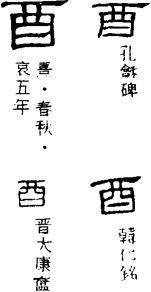 酉
孔龢碑
酉
熹・春秋・
哀五年
酉
韓仁銘
酉
晋大康